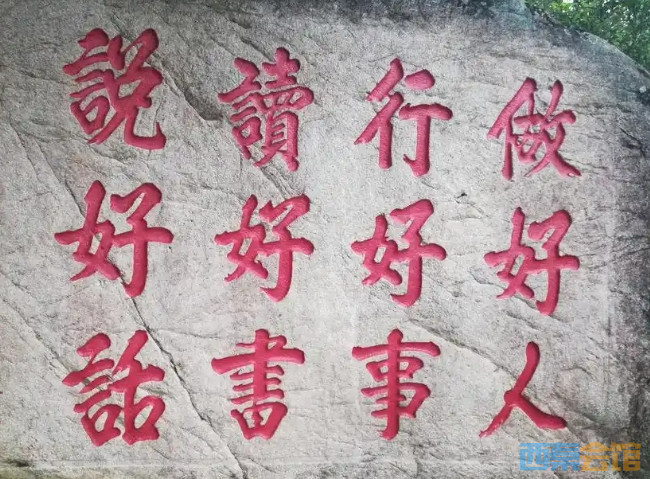 做好人
行好事
讀好書
説好話
会馆